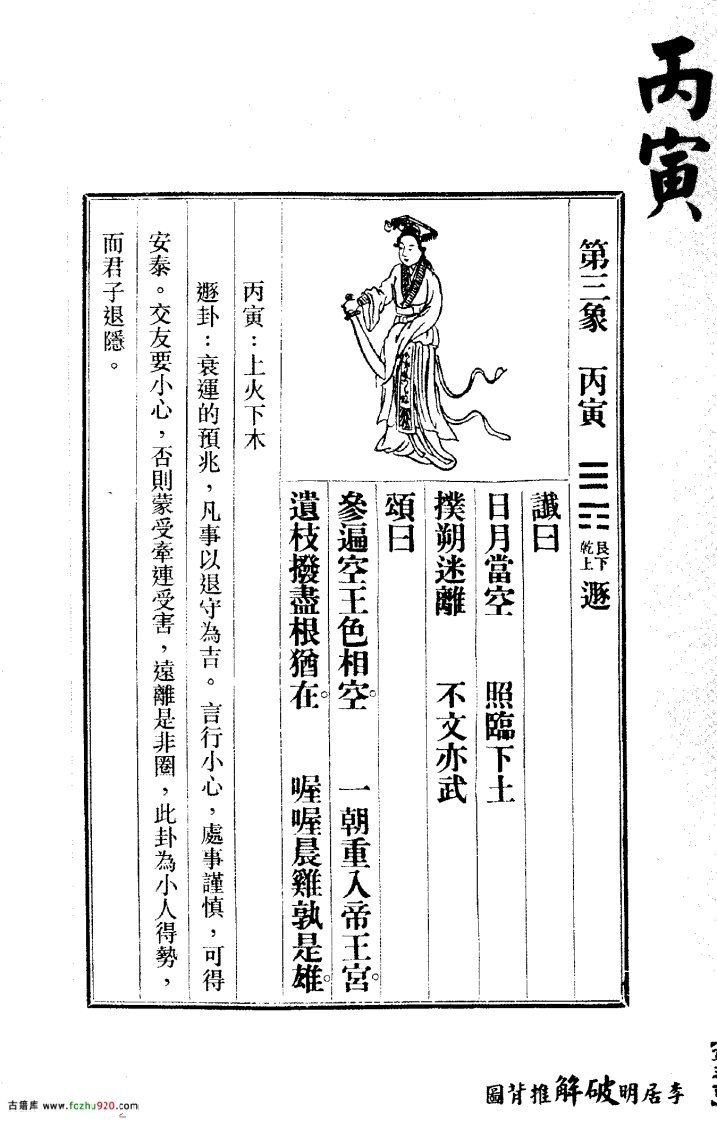 丙寅
第三象 丙寅 ䷠ 艮下乾上 遯
讖曰
日月當空 照臨下土
撲朔迷離 不文亦武
頌曰
參遍空王色相空。 一朝重入帝王宮。
遺枝撥盡根猶在。 喔喔晨雞孰是雄。
丙寅：上火下木
遯卦：衰運的預兆，凡事以退守為吉。言行小心，處事謹慎，可得
安泰。交友要小心，否則蒙受牽連受害，遠離是非圈，此卦為小人得勢，
而君子退隱。
李居明破解推背圖
古籍库 www.fczhu920.com